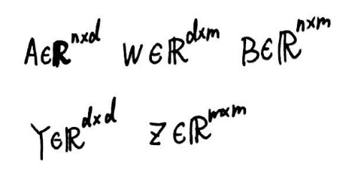 A∈ℝ^{n×d} W∈ℝ^{d×m} B∈ℝ^{n×m}
Y∈ℝ^{d×d} Z∈ℝ^{m×m}